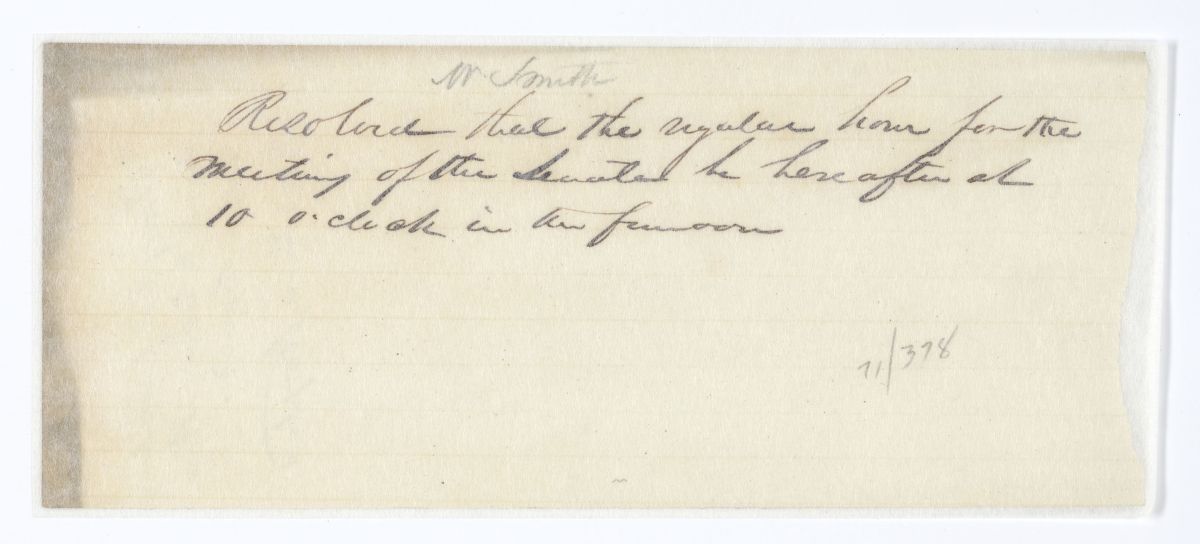 Mr. Smith
Resolved that the regular hour for the
meeting of the Senate be hereafter at
10 o'clock in the forenoon
71/378